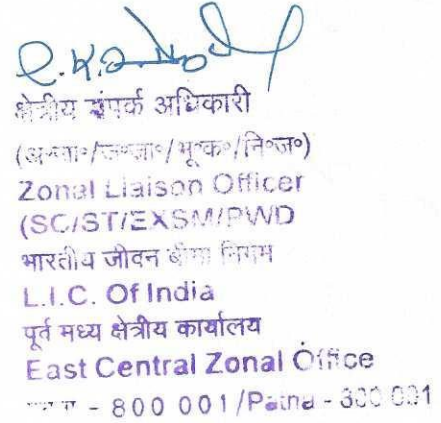 क्षेत्रीय संपर्क अधिकारी
(अ०जा०/ज०जा०/भू०क०/नि०ज०)
Zonal Liaison Officer
(SC/ST/EXSM/PWD
भारतीय जीवन बीमा निगम
L.I.C. Of India
पूर्व मध्य क्षेत्रीय कार्यालय
East Central Zonal Office
- 800 001/Patna - 800 001